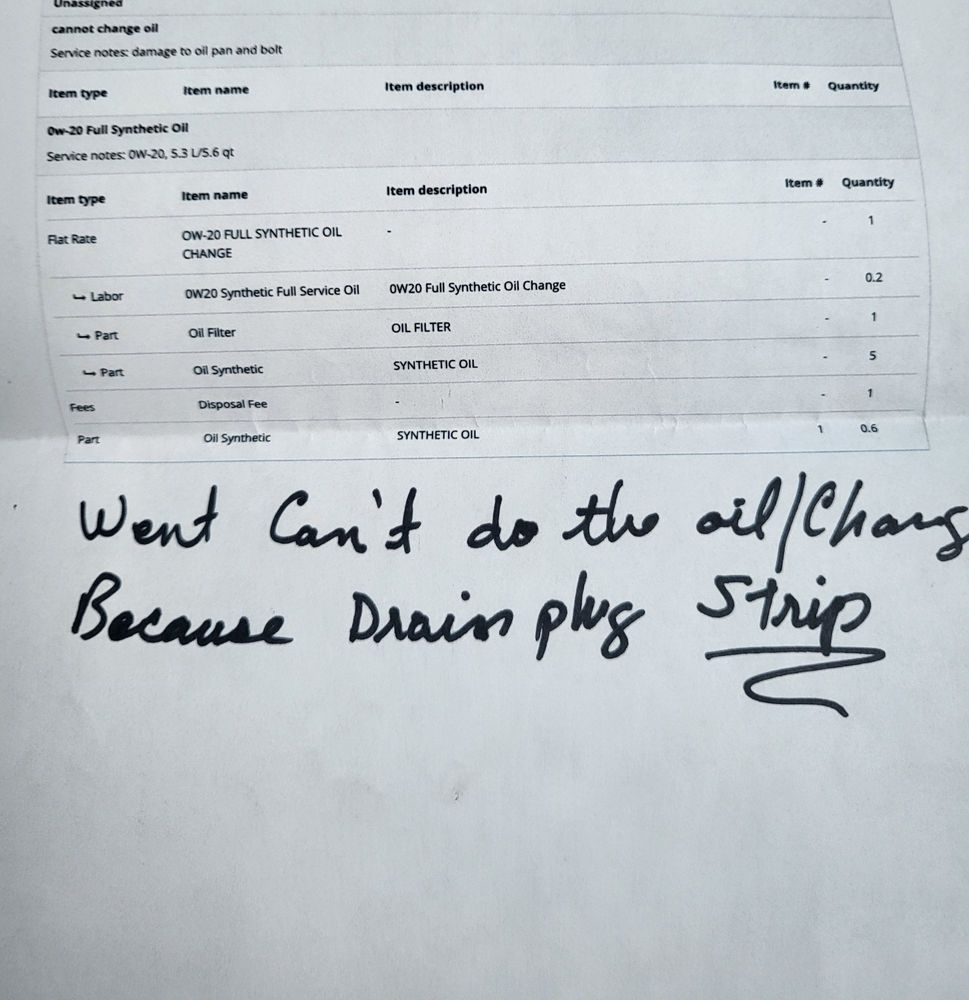 Unassigned
cannot change oil
Service notes: damage to oil pan and bolt
Item type Item name Item description Item # Quantity
0w-20 Full Synthetic Oil
Service notes: 0W-20, 5.3 L/5.6 qt
Item type Item name Item description Item # Quantity
Flat Rate OW-20 FULL SYNTHETIC OIL - - 1
CHANGE
↪ Labor 0W20 Synthetic Full Service Oil 0W20 Full Synthetic Oil Change - 0.2
↪ Part Oil Filter OIL FILTER - 1
↪ Part Oil Synthetic SYNTHETIC OIL - 5
Fees Disposal Fee - - 1
Part Oil Synthetic SYNTHETIC OIL 1 0.6
Went Can't do the oil/Chang
Because Drain plug Strip